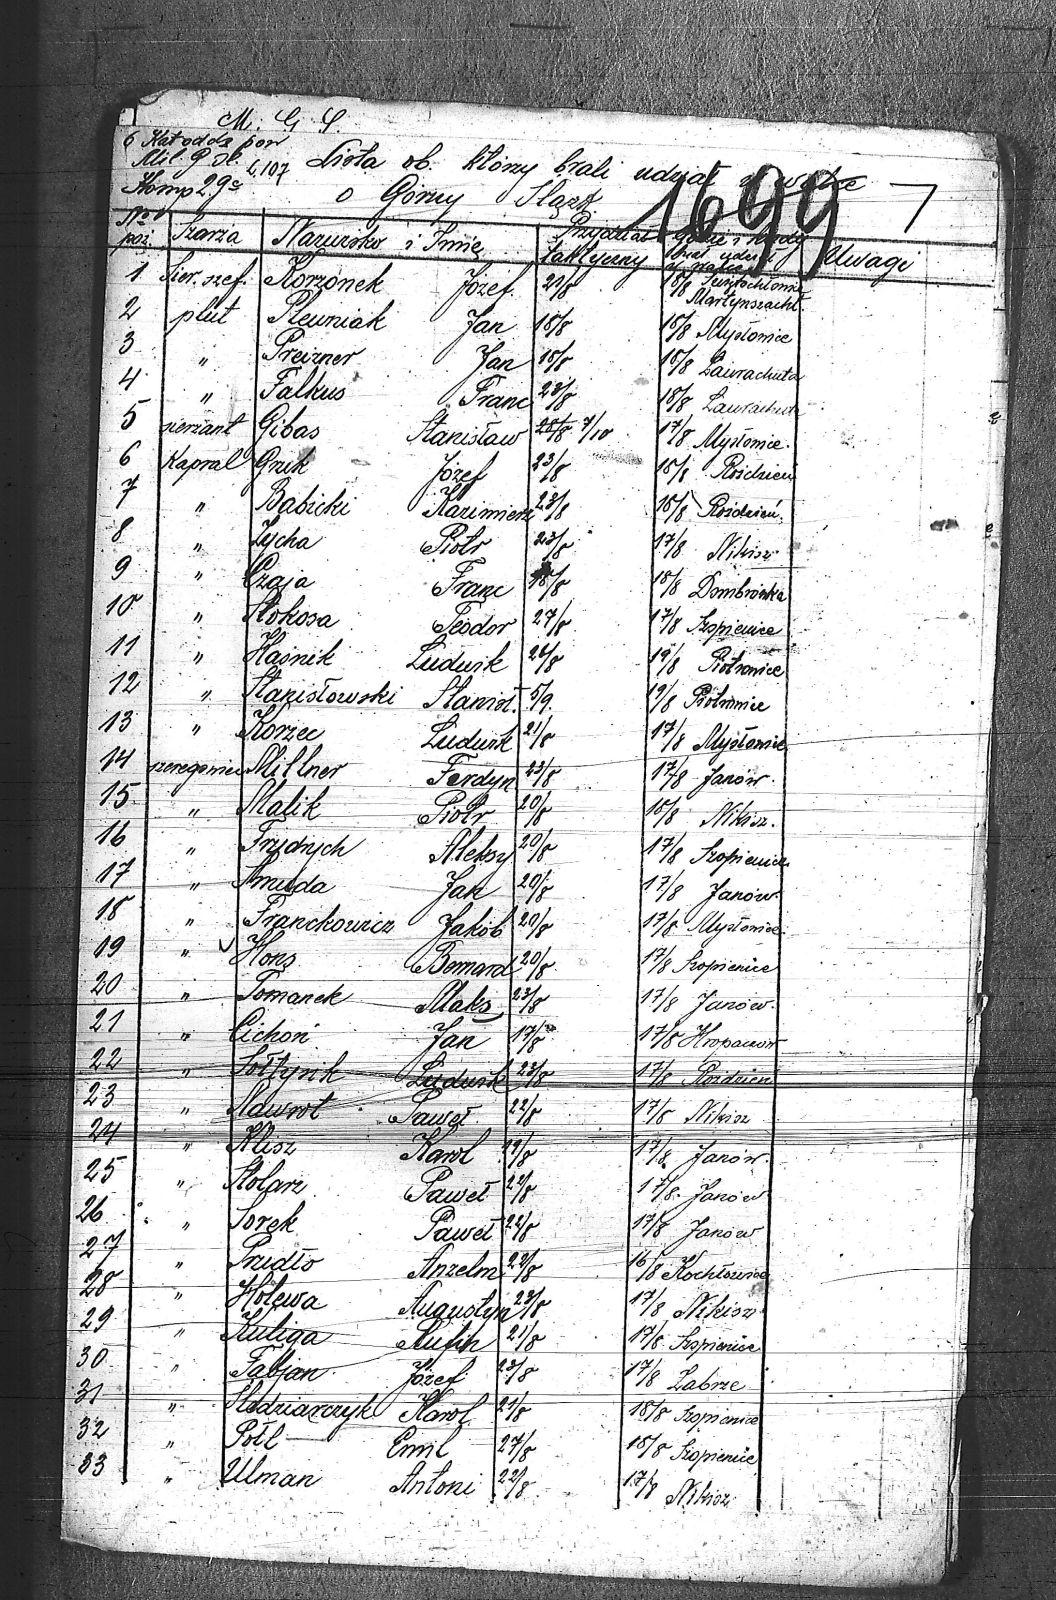 M. G. S.
6 Kat oddz pow
Mil. G. Śl. L 107
Komp 29a
Lista ob. którzy brali udział w walce
o Górny Śląsk
1699 7
No poz. Szarża Nazwisko i Imię Przydział taktyczny Gdzie i kiedy brał udział w walce Uwagi
1 sier. szef. Korzonek Józef. 21/8 18/8 Świętochłowice Martynszacht.
2 plut Plewniak Jan 18/8 18/8 Mysłowice
3 " Preizner Jan 18/8 18/8 Laurachuta
4 " Falkus Franc 23/8 18/8 Laurachuta
5 sierżant Gibas Stanisław 25/8 7/10 17/8 Mysłowice.
6 Kapral Gnik Józef 23/8 18/8 Roździeń
7 " Babicki Kazimierz 23/8 18/8 Roździeń.
8 " Zycha Piotr 23/8 17/8 Nikisz
9 " Czaja Franc 18/8 18/8 Dombrówka
10 " Skokosa Teodor 27/8 17/8 Szopienice
11 " Haśnik Ludwik 26/8 19/8 Piotrowice
12 " Stanisłowski Stanisł. 5/9. 19/8 Piotrowice
13 " Korzec Ludwik 21/8 17/8 Mysłowice
14 szeregowiec Millner Ferdyn 23/8 17/8 Janów.
15 " Malik Piotr 20/8 18/8 Nikisz.
16 " Frydrych Aleksy 20/8 17/8 Szopienice
17 " Smuda Jan 20/8 17/8 Janów.
18 " Franckowicz Jakób 20/8 17/8 Mysłowice.
19 " Hons Bernard 20/8 17/8 Szopienice
20 " Tomanek Maks 23/8 17/8 Janów.
21 " Cichoń Jan 17/8 17/8 Kropaczów
22 " Sołtysik Ludwik 23/8 17/8 Roździeń
23 " Nawrot Paweł 22/8 17/8 Nikisz
24 " Klisz Karol 29/8 17/8 Janów.
25 " Stolarz Paweł 22/8 17/8. Janów
26 " Sorek Paweł 22/8 17/8 Janów
27 " Prudło Anzelm 22/8 16/8 Kochłowice
28 " Holewa Augustyn 23/8 17/8 Nikisz
29 " Kuliga Rufin 21/8 17/8 Szopienice
30 " Fabjan Józef 23/8 17/8 Zabrze
31 " Składziarczyk Karol 21/8 18/8 Szopienice
32 " Połl Emil 27/8 18/8 Szopienice
33 " Ulman Antoni 22/8 17/8 Nikisz